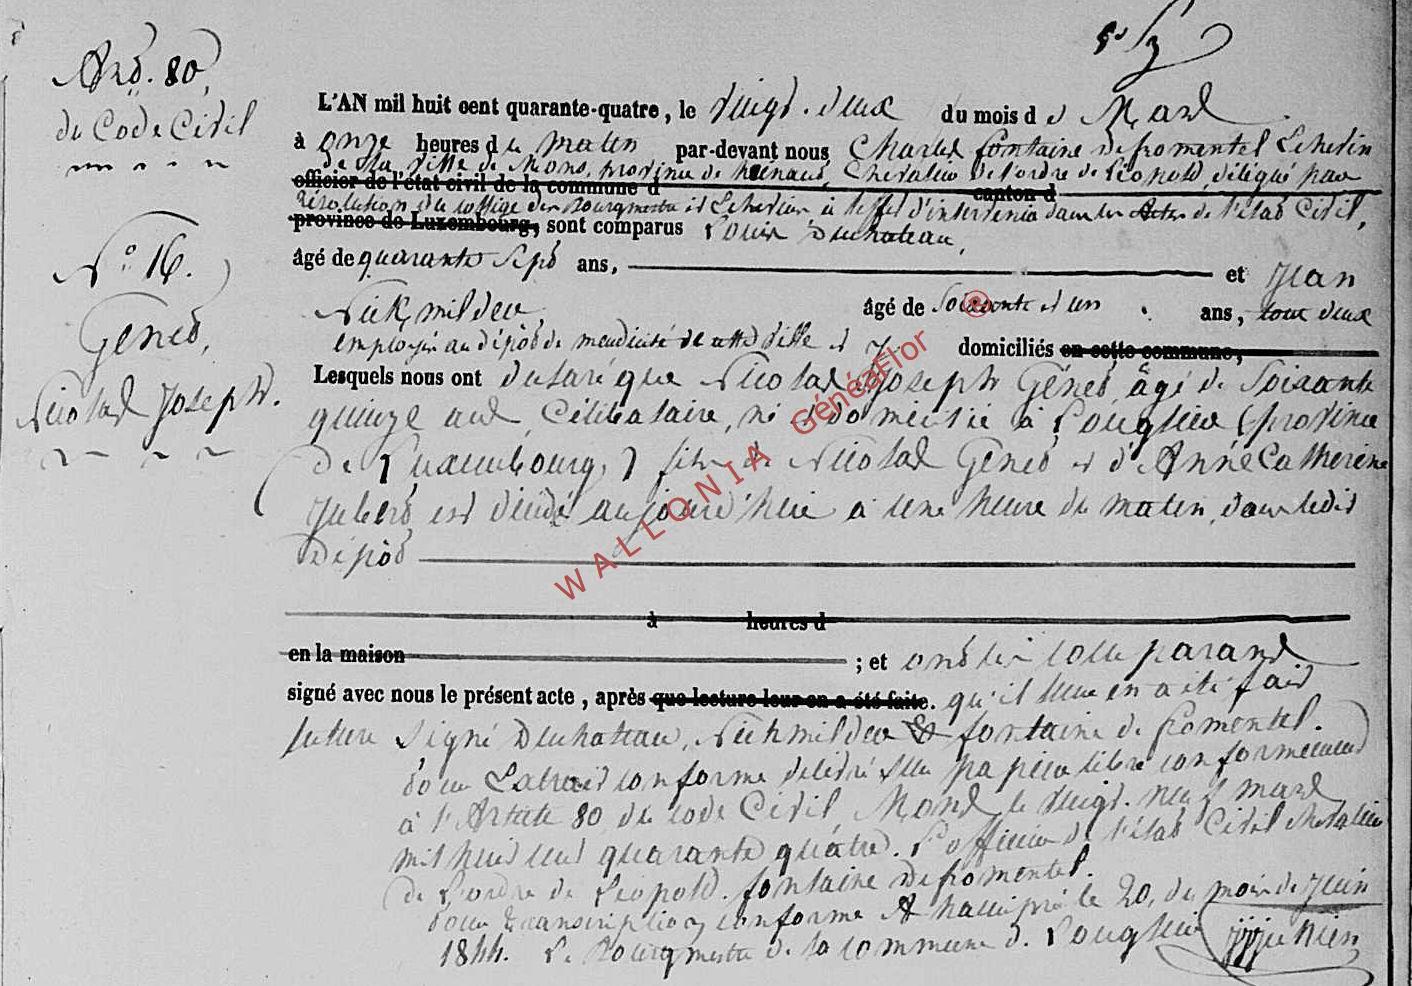 Art. 80,
du Code Civil
N.° 16.
Genet,
Nicolas Joseph.
L'AN mil huit cent quarante-quatre, le vingt-deux du mois d e Mars
à onze heures d u matin par-devant nous Charles fontaine defromentel Echevin
de la Ville de Mons, province de hainaut, Chevalier de l'ordre de Léopold, délégué par
officier de l'état civil de la commune d canton d
résolution du collège des Bourgmestre et Echevins à l'effet d'intervenir dans les Actes de l'état Civil,
province de Luxembourg, sont comparus Louis Duchateau,
âgé de quarante Sept ans, et Jean
Nickmilder âgé de Soixante et un ans, tous deux
employés au dépôt de mendicité de cette Ville et y domiciliés en cette commune,
Lesquels nous ont déclaré que Nicolas Joseph Genet âgé de Soixante
quinze ans, Célibataire, né et domicilié à Louglier (province
de Luxembourg,) fils de Nicolas Genet et d'Anne Catherine
Jubert est décédé aujourd'hui à une heure du matin, dans ledit
Dépôt
à heures d
en la maison ; et ont les comparans
signé avec nous le présent acte, après que lecture leur en a été faite. qu'il leur en a été fait
lecture Signé Duchateau, Nickmilder & fontaine de fromentel.
pour Extrait conforme délivré sur papier libre conformément
à l'Article 80 du code Civil Mons le vingt-neuf mars
mil huit cent quarante quatre. L'officier de l'état Civil chevalier
de L'ordre de Léopold. fontaine defromentel.
pour transcription conforme le 20, du mois de Juin
1844. Le Bourgmestre de la commune de Louglier
WALLONIA GénéaFlor ®